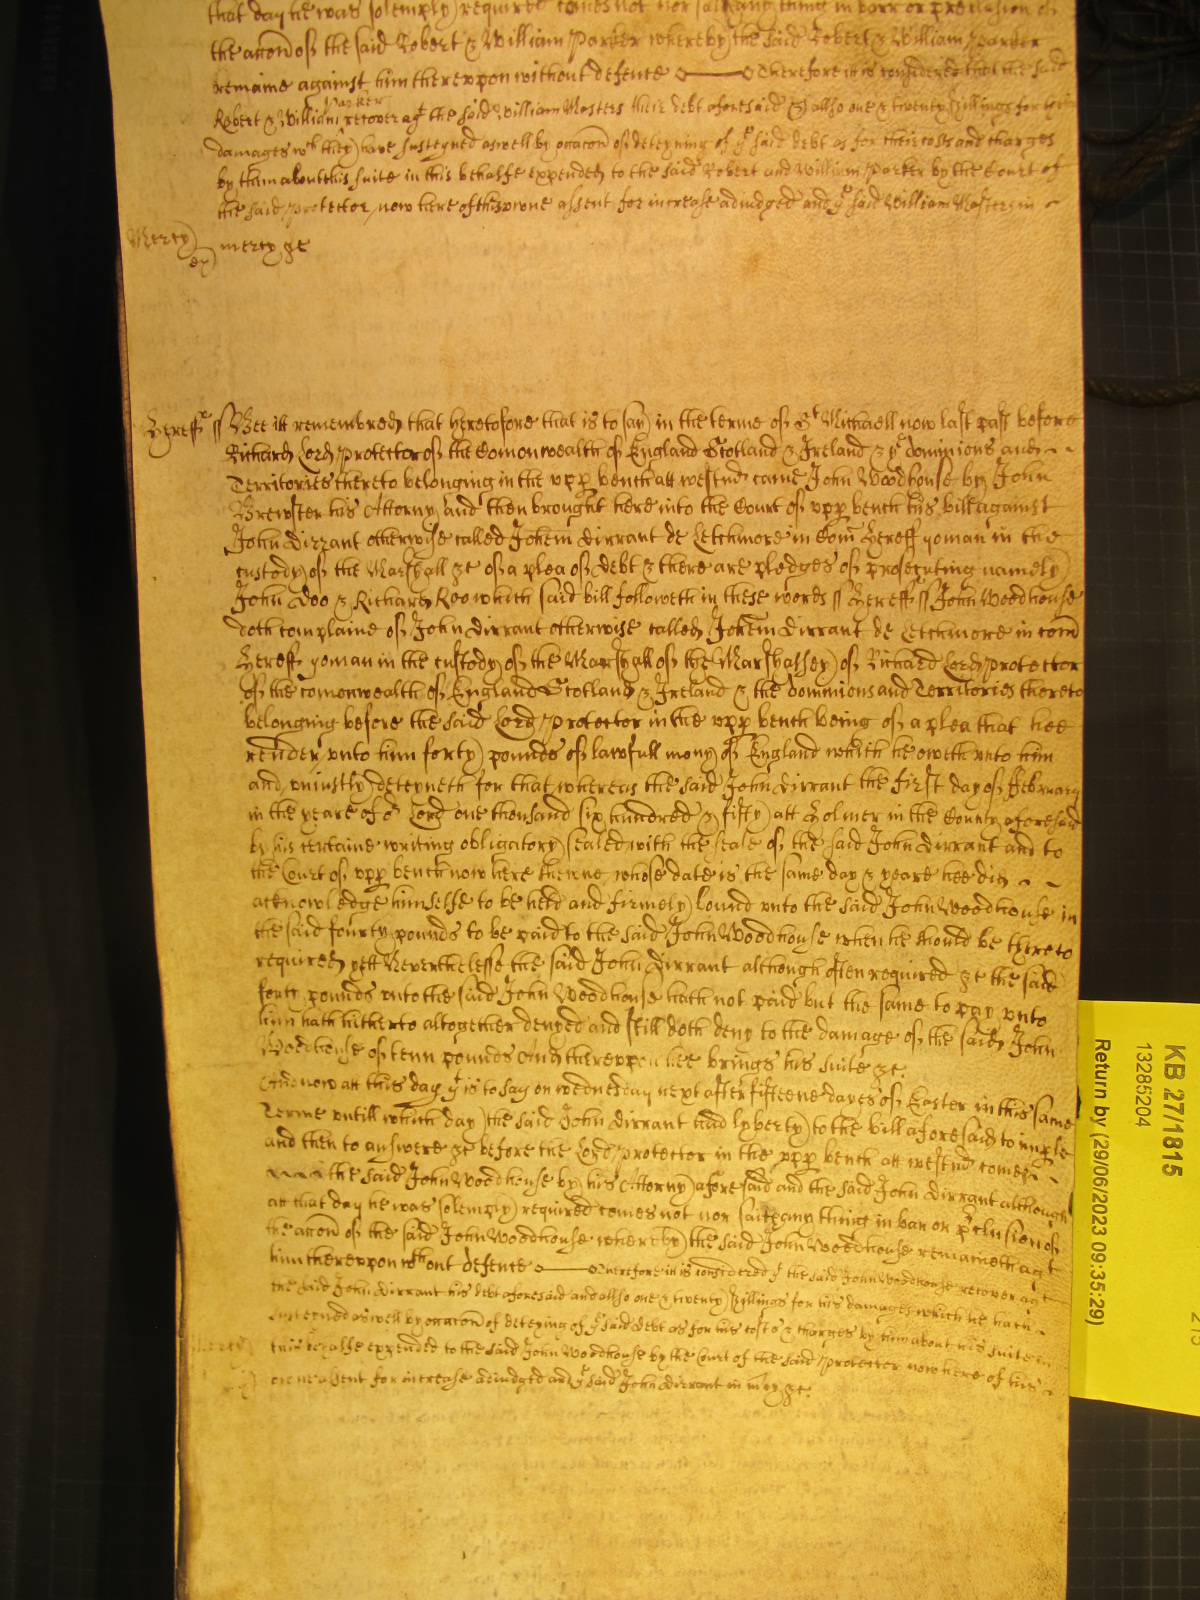 that day he was solemply required comes not nor saith any thing in barr or preclusion of
the accon of the said Robert & William Parker whereby the said Robert & William Parker
remaine against him thereupon without defence Therefore it is considered that the said
Parker
Robert & William recover agt the said William Masters their debt aforesaid & allso one & twenty shillings for their
damages wch they have susteyned aswell by occacon of deteyning of ye said debt as for their costs and charges
by them about this suite in this behalfe expended to the said Robert and William Parker by the Court of
the said Protector now here of their owne assent for increase adiudged and ye said William Masters in
Mercy mercy &c
Hereff ss Bee itt remembred that heretofore that is to say in the terme of St Michaell now last past before
Richard Lord Protector of the Comonwealth of England Scotland & Ireland & ye dominions and
Territories thereto belonging in the upp bench att westmr came John Woodhouse by John
Brewster his Attorny and then brought here into the Court of upp bench his bill against
John Dirrant otherwise called Johem Dirrant de Letchmore in Com Hereff yoman in the
custody of the Marshall &c of a plea of debt & there are pledges of prosecuting namely
John Doo & Richard Roo which said bill followeth in these words ss Hereff ss John Woodhouse
doth complaine of John Dirrant otherwise called Johem Dirrant de Letchmore in com
Hereff yoman in the custody of the Marshall of the Marshallsey of Richard Lord Protector
of the comonwealth of England Scotland & Ireland & the dominions and Territories thereto
belonging before the said Lord Protector in the upp bench being of a plea that hee
render unto him forty pounds of lawfull mony of England which he oweth unto him
and uniustly deteyneth for that whereas the said John Dirrant the first day of February
in the yeare of or Lord one thousand six hundred & fifty att Holmer in the County aforesaid
by his certaine writing obligatory sealed with the seale of the said John Dirrant and to
the Court of upp bench now here shewne whose date is the same day & yeare hee did
acknowledge himselfe to be held and firmely bound unto the said John Woodhouse in
the said fourty pounds to be paid to the said John Woodhouse when he should be thereto
required yett Neverthelesse the said John Dirrant although often required &c the said
forty pounds unto the said John Woodhouse hath not paid but the same to pay unto
him hath hitherto altogether denyed and still doth deny to the damage of the said John
Woodhouse of tenn pounds And thereuppon hee brings his suite &c.
And now att this day yt is to say on wednesday next after fifteene dayes of Easter in this same
Terme untill which day the said John Dirrant had lyberty to the bill aforesaid to imple
and then to answere &c before the Lord Protector in the upp bench att westmr comes
the said John Woodhouse by his Attorny aforesaid and the said John Dirrant although
att that day he was solemply required comes not nor saith any thing in barr or pclusion of
the accon of the said John Woodhouse whereby the said John Woodhouse remaineth agt
him thereuppon wthout defence Therefore it is considered yt the said John Woodhouse recover agt
the said John Dirrant his debt aforesaid and allso one & twenty shillings for his damages which he hath
susteyned aswell by occacon of deteying of ye said debt as for his costs & charges by him about his suite in
Mercy this behalfe expended to the said John Woodhouse by the Court of the said Protector now here of their
owne assent for increase adiudged and ye said John Dirrant in mcy &c.
KB 27/1815
13285204
Return by (29/06/2023 09:35:29)